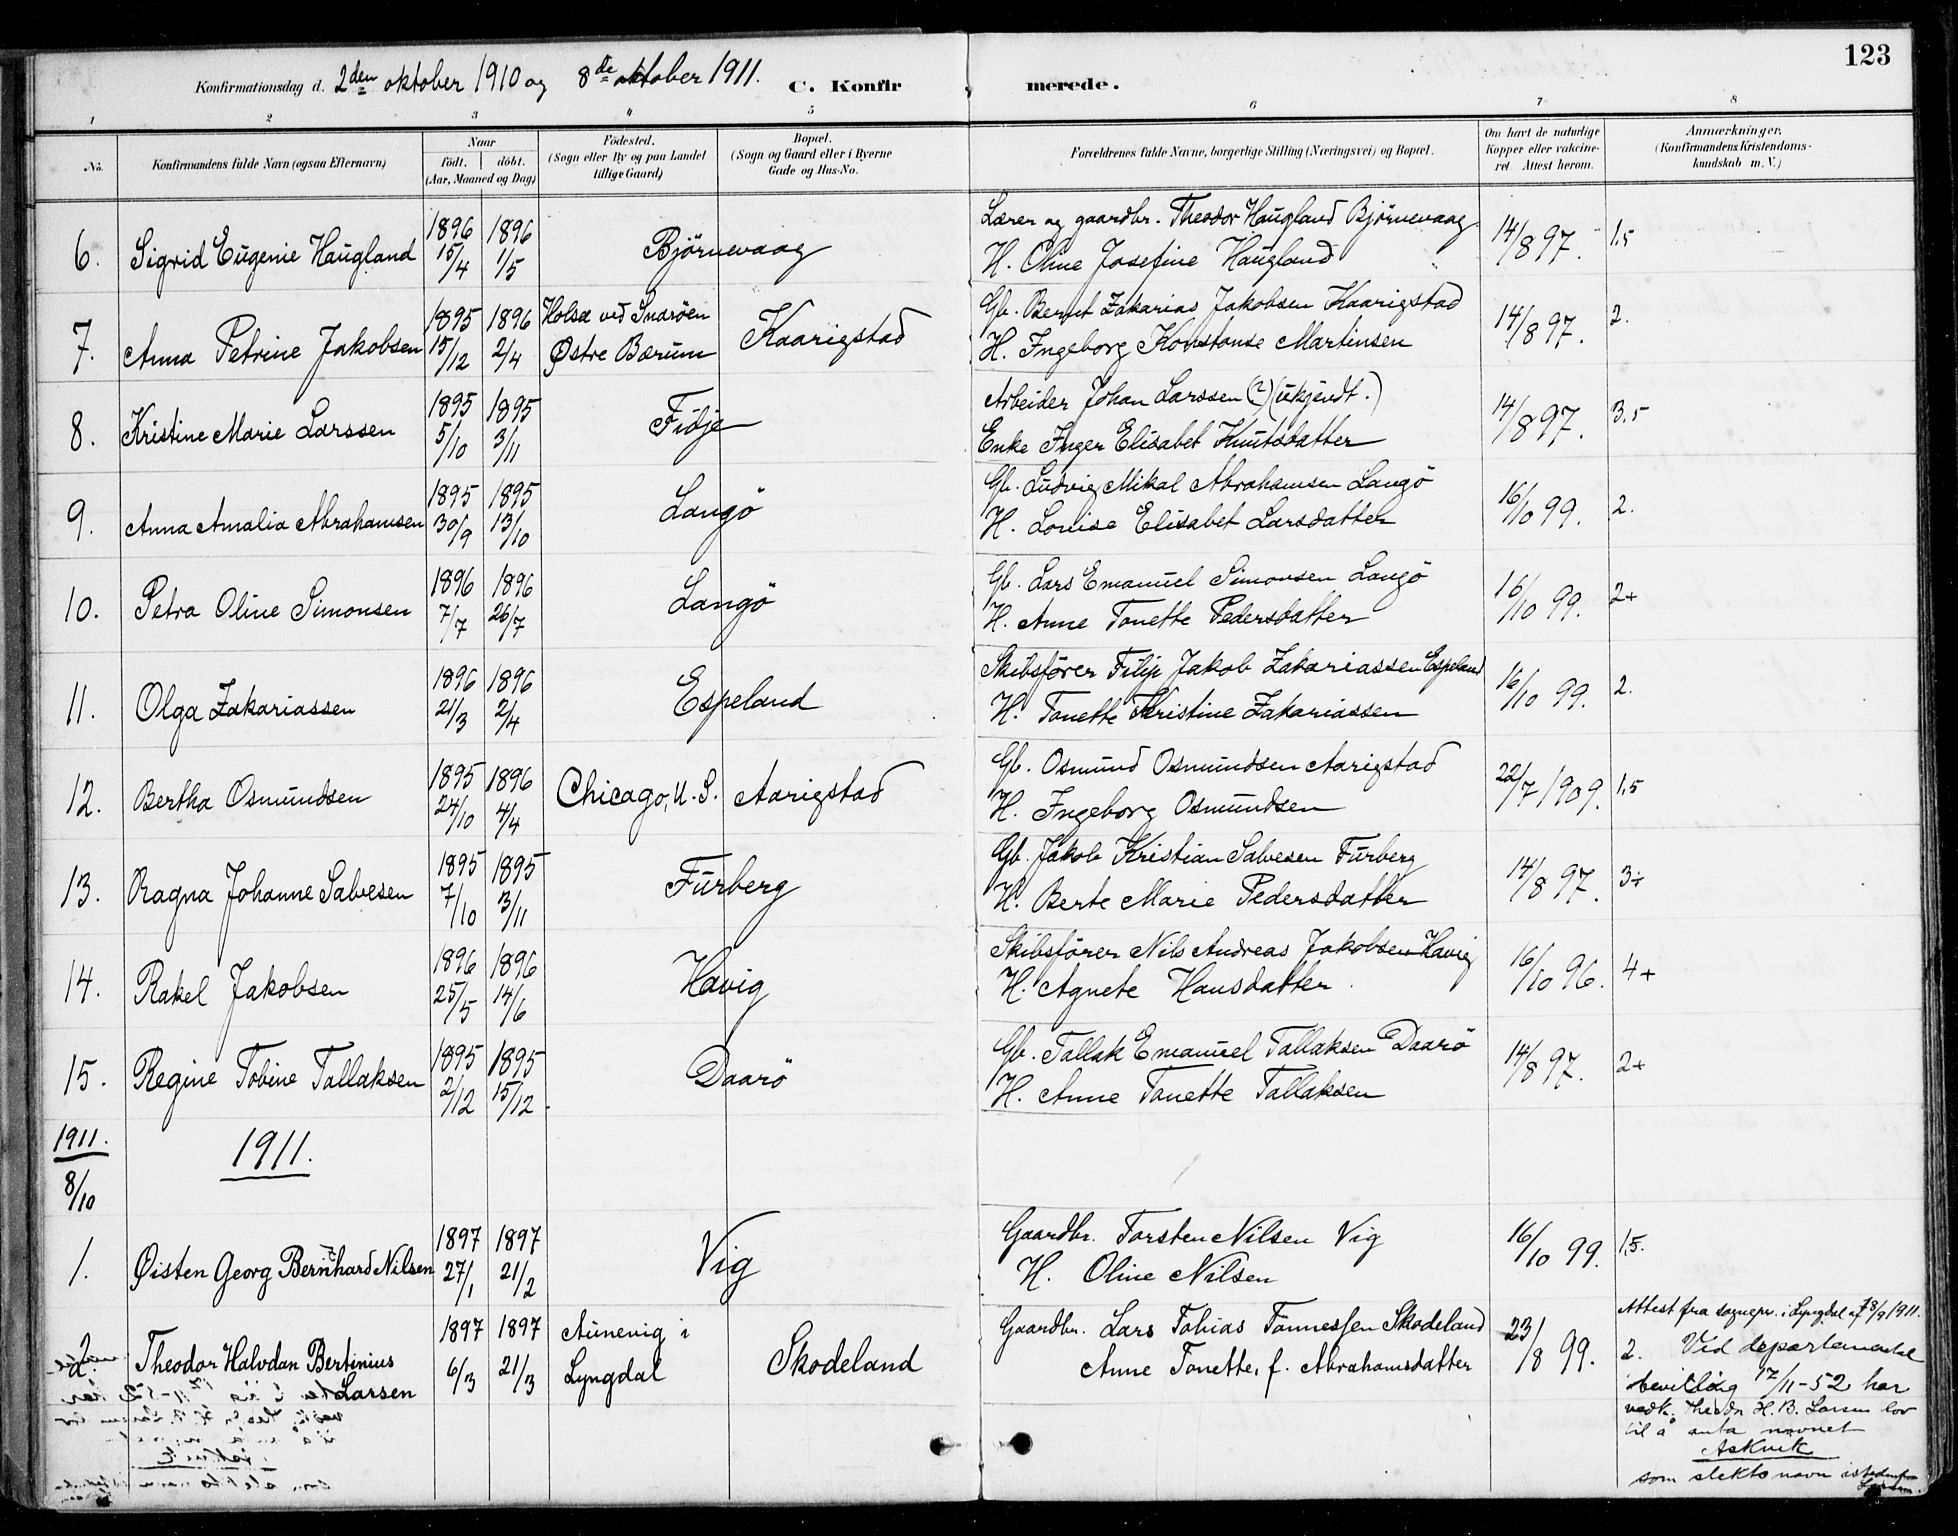 123
Konfirmationsdag d. 2den oktober 1910 og 8de oktober 1911. C. Konfirmerede.
1 2 3 4 5 6 7 8
No. Konfirmandens fulde Navn (ogsaa Efternavn) Naar født. døbt. (Aar, Maaned og Dag) Fødested. (Sogn eller By og paa Landet tillige Gaard) Bopæl. (Sogn og Gaard eller i Byerne Gade og Hus-No. Forældrenes fulde Navne, borgerlige Stilling (Næringsvei) og Bopæl. Om havt de naturlige Kopper eller vaccineret Attest herom. Anmærkninger. (Konfirmandens Kristendomskundskab m. V.)
6. Sigrid Eugenie Haugland 1896 15/4 1896 1/5 Bjørnevaag Lærer og gaardbr. Theodor Haugland Bjørnevaag
H. Oline Josefine Haugland 14/8 97. 1.5
7. Anna Petrine Jakobsen 1895 15/12 1896 2/4 Holsæ ved Snarøen Østre Bærum Kaarigstad Gb. Bernt Zakarias Jakobsen Kaarigstad
H. Ingeborg Konstanse Martinsen 14/8 97. 2.
8. Kristine Marie Larssen 1895 5/10 1895 3/11 Fidje Arbeider Johan Larssen (?) (ukjendt.)
Enke Inger Elisabet Knutsdatter 14/8 97. 3.5
9. Anna Amalia Abrahamsen 1895 30/9 1895 13/10 Langö Gb. Ludvig Mikal Abrahamsen Langö
H. Lovise Elisabet Larsdatter 16/10 99. 2.
10. Petra Oline Simonsen 1896 7/7 1896 26/7 Langö Gb. Lars Emanuel Simonsen Langö
H. Anne Tonette Pedersdatter 16/10 99. 2+
11. Olga Zakariassen 1896 21/3 1896 2/4 Espeland Skibsfører Filip Jakob Zakariassen Espeland
H. Tonette Kristine Zakariassen 16/10 99. 2.
12. Bertha Osmundsen 1895 24/10 1896 4/4 Chicago, U.S. Aarigstad Gb. Osmund Osmundsen Aarigstad
H. Ingeborg Osmundsen 22/7 1909. 1.5
13. Ragna Johanne Salvesen 1895 7/10 1895 3/11 Furberg Gb. Jakob Kristian Salvesen Furberg
H. Berte Marie Pedersdatter 14/8 97. 3÷
14. Rakel Jakobsen 1896 25/5 1896 14/6 Havig Skibsfører Nils Andreas Jakobsen Havig
H. Agnete Hansdatter 16/10 96. 4+
15. Regine Tobine Tallaksen 1895 2/12 1895 15/12 Daarö Gb. Tallak Emanuel Tallaksen Daarö
H. Anne Tonette Tallaksen 14/8 97. 2+
1911. 8/10 1911.
1. Øisten Georg Bernhard Nilsen 1897 27/1 1897 21/2 Vig Gaardbr. Torsten Nilsen Vig
H. Oline Nilsen 16/10 99. 1.5.
2. Theodor Halvdan Bertinius Larsen 1897 6/3 1897 21/3 Aunevig i Lyngdal Skodeland Gaardbr. Lars Tobias Tønnessen Skodeland
Anne Tonette, f. Abrahamsdatter 23/8 99.
Attest fra sognepr. i Lyngdal af 8/9 1911.
2. Ved departemental
bevilling 17/11-52 har
vedk. Theodor H. B. Larsen lov
til å anta navnet
Askvik
som slektsnavn istedenfor
Larsen.